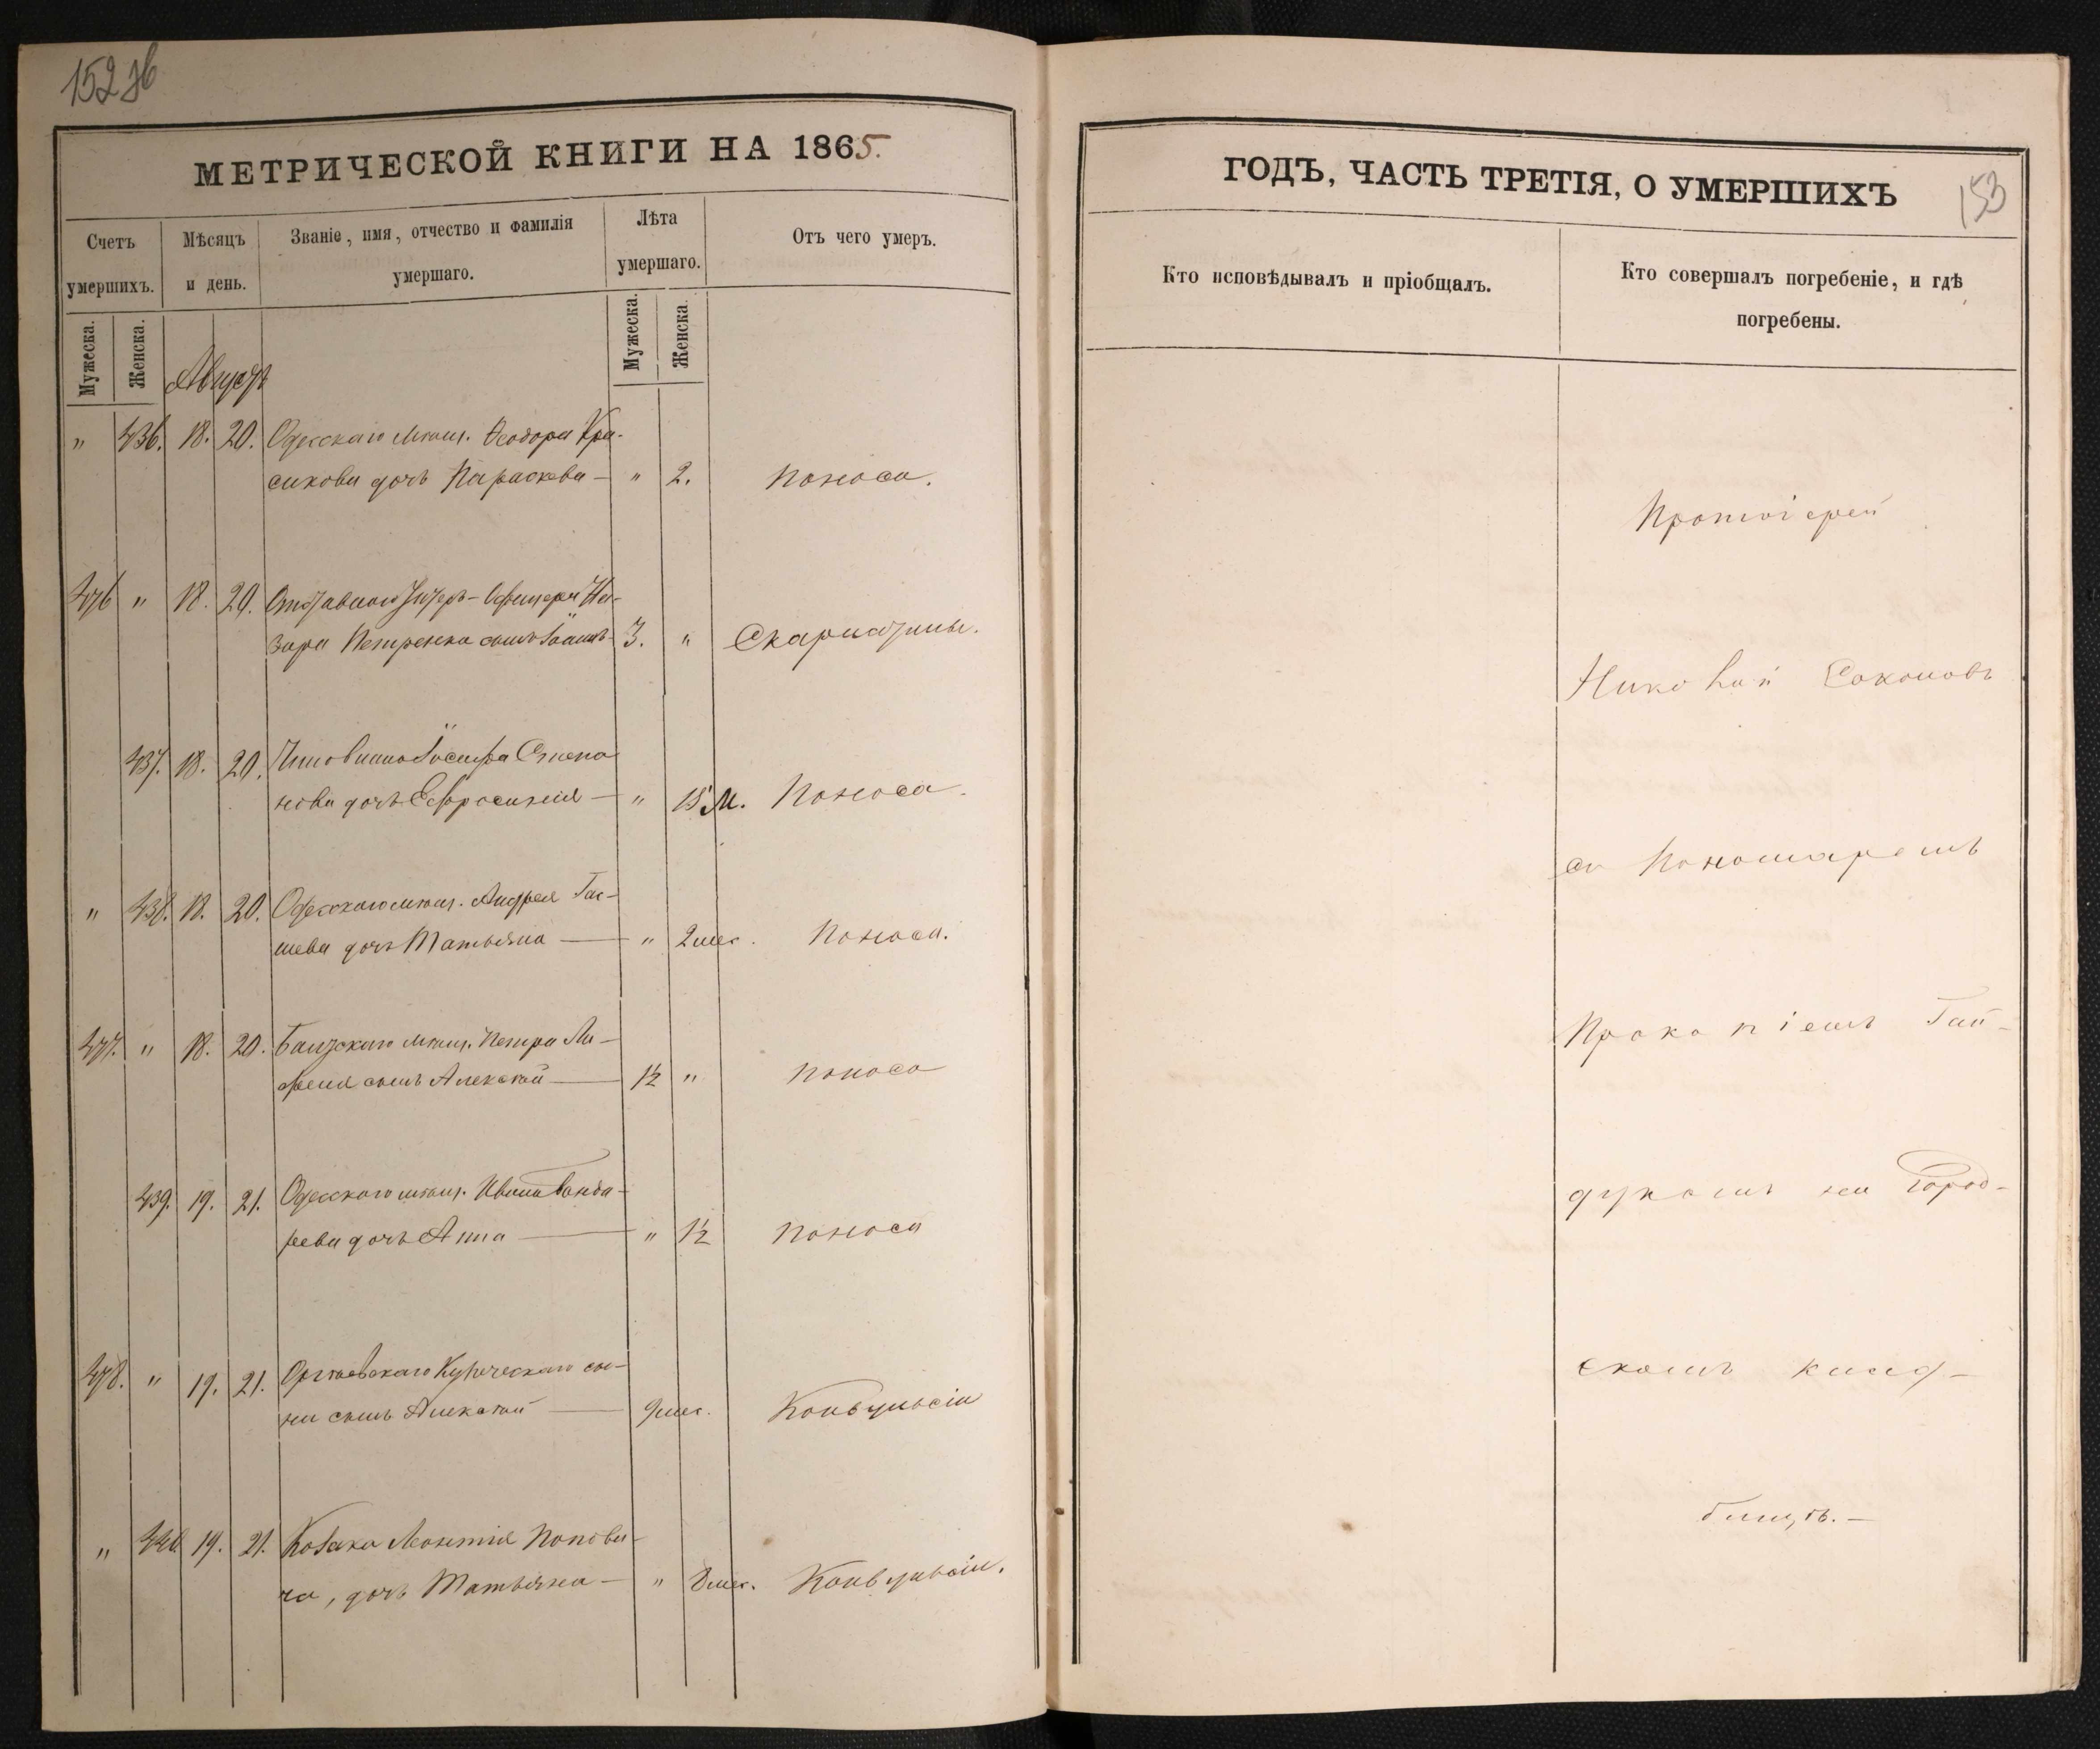 152
МЕТРИЧЕСКОЙ КНИГИ НА 1865.
Счетъ умершихъ.
Мѣсяцъ и день.
Званіе, имя, отчество и фамилія умершаго.
Лѣта умершаго.
Отъ чего умеръ.
Мужеска.
Женска.
Мужеска.
Женска.
Августъ
" 436. 18. 20. Одесскаго мѣщ. Ѳеодора Кра-
сикова дочь Параскева — " 2. Поноса.
476 " 18. 20. Отставнаго Унтеръ-Офицера На-
зара Петренка сынъ Іоаннъ 3. " Скарлатины.
437. 18. 20. Чиновника Іосифа Степа
нова дочь Ефросинія — " 15 м. Поноса.
" 438. 18. 20. Одесскаго мѣщ. Андрея
дочь Татьяна — " 2 мес. Поноса.
477. " 18. 20. мѣщ. Петра
сынъ Алексѣй — 1½ " поноса
439. 19. 21. Одесскаго мѣщ. Ивана Бонда-
рева дочь Анна — " 1½ поноса
478. " 19. 21. Купеческаго сы-
на сынъ Алексѣй — 9 мес. Конвульсіи
" 440 19. 21. Козака Леонтія Попови-
ча, дочь Татьяна — " 8 мес. Конвульсіи.
ГОДЪ, ЧАСТЬ ТРЕТІЯ, О УМЕРШИХЪ
153
Кто исповѣдывалъ и пріобщалъ.
Кто совершалъ погребеніе, и гдѣ погребены.
Протоіерей
Николай Соколовъ
съ Пономаремъ
Прокопіемъ Гай-
дукомъ на Город-
скомъ клад-
бищѣ. —